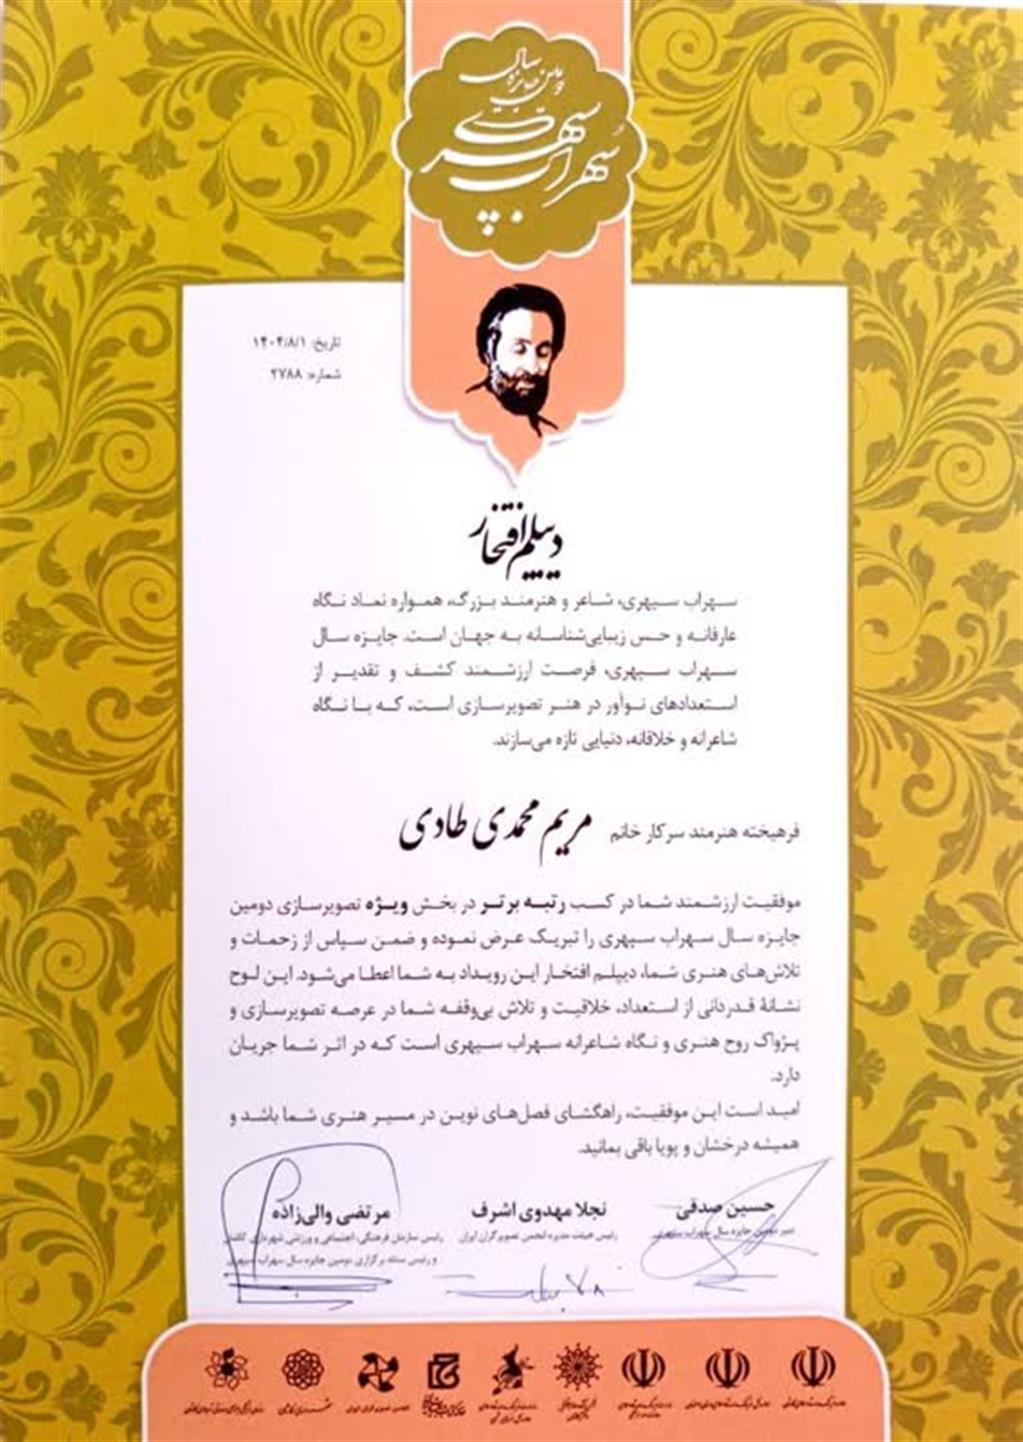 دومین جایزه سال
سهراب سپهری
تاریخ: ۱۴۰۴/۸/۱
شماره: ۲۷۸۸
دیپلم افتخار
سهراب سپهری، شاعر و هنرمند بزرگ، همواره نماد نگاه
عارفانه و حس زیبایی‌شناسانه به جهان است. جایزه سال
سهراب سپهری، فرصت ارزشمند کشف و تقدیر از
استعدادهای نوآور در هنر تصویرسازی است، که با نگاه
شاعرانه و خلاقانه، دنیایی تازه می‌سازند.
فرهیخته هنرمند سرکار خانم مریم محمدی طادی
موفقیت ارزشمند شما در کسب رتبه برتر در بخش ویژه تصویرسازی دومین
جایزه سال سهراب سپهری را تبریک عرض نموده و ضمن سپاس از زحمات و
تلاش‌های هنری شما، دیپلم افتخار این رویداد به شما اعطا می‌شود. این لوح
نشانهٔ قدردانی از استعداد، خلاقیت و تلاش بی‌وقفه شما در عرصه تصویرسازی و
پژواک روح هنری و نگاه شاعرانه سهراب سپهری است که در اثر شما جریان
دارد.
امید است این موفقیت، راهگشای فصل‌های نوین در مسیر هنری شما باشد و
همیشه درخشان و پویا باقی بمانید.
حسین صدقی
دبیر دومین جایزه سال سهراب سپهری
نجلا مهدوی اشرف
رئیس هیئت مدیره انجمن تصویرگران ایران
مرتضی والی‌زاده
رئیس سازمان فرهنگی، اجتماعی و ورزشی شهرداری کاشان
و رئیس ستاد برگزاری دومین جایزه سال سهراب سپهری